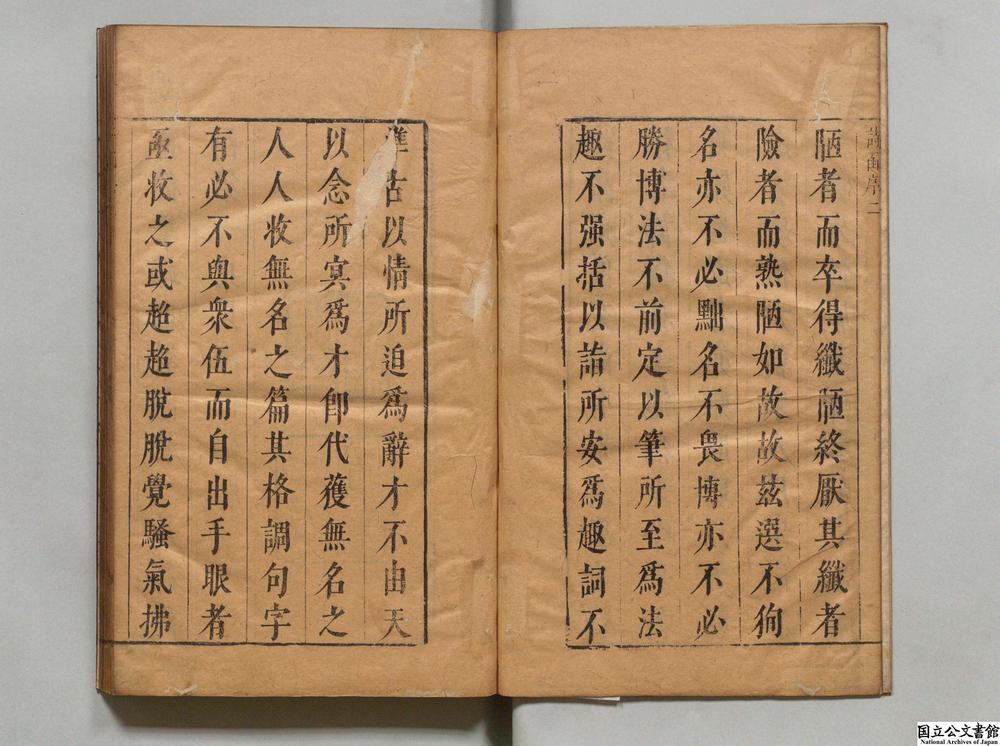 陋者而卒得纖陋終厭其纖者
險者而熟陋如故故兹選不狥
名亦不必黜名不畏博亦不必
勝博法不前定以筆所至爲法
趣不强括以詣所安爲趣詞不
準古以情所迫爲辭才不由天
以念所㝠爲才卽代獲無名之
人人收無名之篇其格調句字
有必不與衆伍而自出手眼者
亟收之或超超脫脫覺騷氣拂
國立公文書館
National Archives of Japan